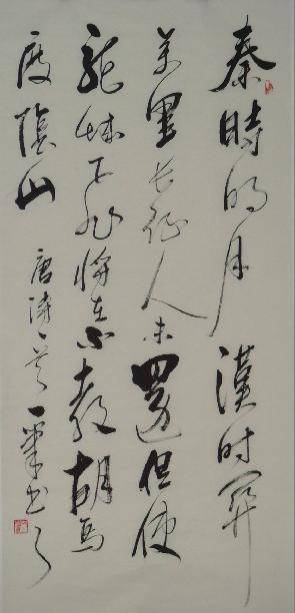 秦時明月漢时關
萬里长征人未還但使
龍城飛將在不教胡馬
度陰山
唐詩一首